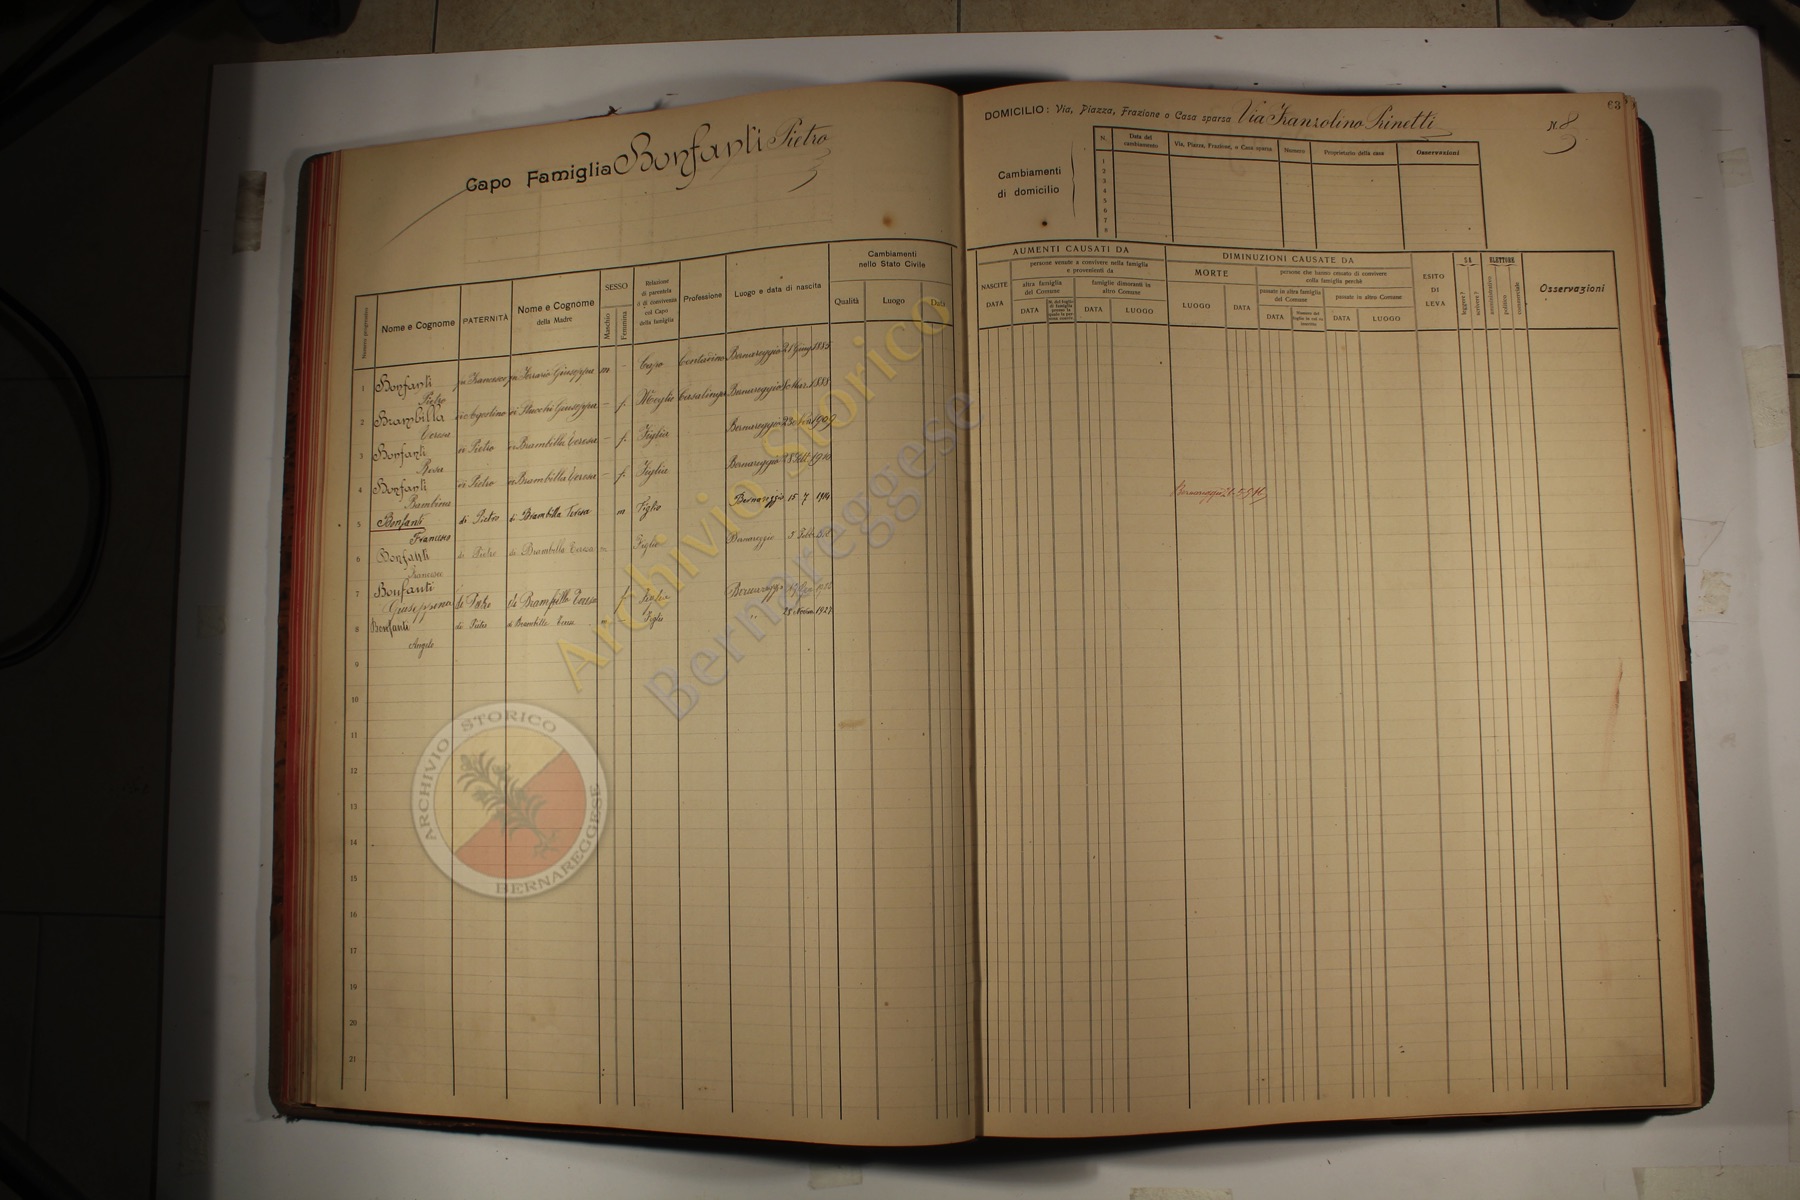 Capo Famiglia Bonfanti Pietro
Numero progressivo
Nome e Cognome
PATERNITÀ
Nome e Cognome
della Madre
SESSO
Maschio
Femmina
Relazione
di parentela
o di convivenza
col Capo
della famiglia
Professione
Luogo e data di nascita
Cambiamenti
nello Stato Civile
Qualità
Luogo
Data
1 Bonfanti Pietro fu Francesco fu Ferrario Giuseppa m - Capo Contadino Bernareggio 1885
2 Brambilla Teresa di Agostino di Stucchi Giuseppa - f. Moglie Casalinga Bernareggio 1888
3 Bonfanti Rosa di Pietro di Brambilla Teresa - f. Figlia Bernareggio 23 1909
4 Bonfanti Bambina di Pietro di Brambilla Teresa - f. Figlia Bernareggio 1910
5 Bonfanti Francesco di Pietro di Brambilla Teresa m Figlio Bernareggio 15 7 1914
6 Bonfanti Francesco di Pietro di Brambilla Teresa m Figlio Bernareggio 5 Febb.
7 Bonfanti Giuseppina di Pietro di Brambilla Teresa f Figlia Bernareggio
8 Bonfanti Angelo di Pietro di Brambilla Teresa m Figlio " 25 Novem. 1927
9
10
11
12
13
14
15
16
17
18
19
20
21
DOMICILIO: Via, Piazza, Frazione o Casa sparsa Via Franzolino Prinetti N. 8
63
Cambiamenti
di domicilio
N.
Data del
cambiamento
Via, Piazza, Frazione, o Casa sparsa
Numero
Proprietario della casa
Osservazioni
1
2
3
4
5
6
7
8
AUMENTI CAUSATI DA
NASCITE
DATA
persone venute a convivere nella famiglia
e provenienti da
altra famiglia
del Comune
DATA
famiglie dimoranti in
altro Comune
DATA
LUOGO
DIMINUZIONI CAUSATE DA
MORTE
LUOGO
DATA
persone che hanno cessato di convivere
colla famiglia perchè
passate in altra famiglia
del Comune
DATA
passate in altro Comune
DATA
LUOGO
ESITO
DI
LEVA
SA
leggere?
scrivere?
ELETTORE
amministrativo
politico
commerciale
Osservazioni
Bernareggio
Archivio Storico
Bernareggese
ARCHIVIO STORICO
BERNAREGGESE